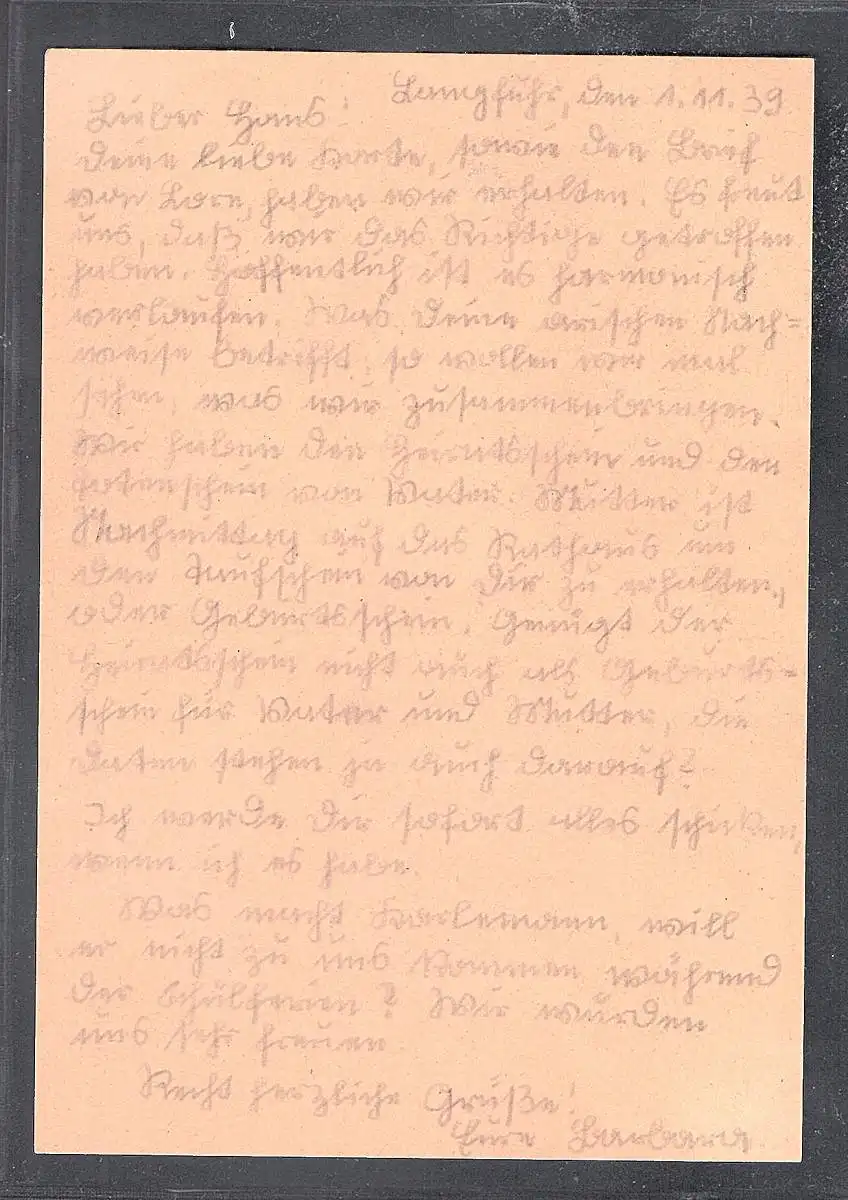 Langfuhr, den 1.11.39
Lieber Hans!
Deine liebe Karte, sowie den Brief
von Lore, haben wir erhalten. Es freut
uns, daß wir das Richtige getroffen
haben. Hoffentlich ist es harmonisch
verlaufen. Was Deine arischen Nach=
weise betrifft, so wollen wir mal
sehen, was wir zusammenbringen.
Wir haben den Heiratsschein und den
Totenschein von Vater. Mutter ist
Nachmittag auf das Rathaus um
den Taufschein von Dir zu erhalten,
oder Geburtsschein. Genügt der
Heiratsschein nicht auch als Geburts=
schein für Vater und Mutter, die
Daten stehen ja auch darauf?
Ich werde Dir sofort alles schicken,
wenn ich es habe.
Was macht Karlemann, will
er nicht zu uns kommen während
der Schulferien? Wir würden
uns sehr freuen.
Recht herzliche Grüße!
Eure Barbara